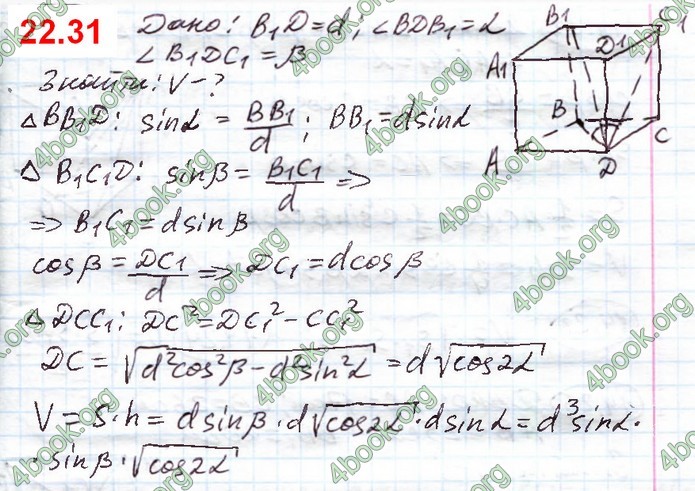 22.31 Дано: B₁D=d, ∠BDB₁=α
∠B₁DC₁=β
Знайти: V-?
△BB₁D: sinα = BB₁/d; BB₁=dsinα
△B₁C₁D: sinβ = B₁C₁/d ⇒
⇒ B₁C₁=dsinβ
cosβ = DC₁/d ⇒ DC₁=dcosβ
△DCC₁: DC²=DC₁²-CC₁²
DC = √(d²cos²β-d²sin²α) = d√(cos2α)
V = S·h = dsinβ·d√(cos2α)·dsinα = d³sinα·
·sinβ·√(cos2α)
B₁
C₁
D₁
A₁
B
C
A
D
4book.org
4book.org
4book.org
4book.org
4book.org
4book.org
4book.org
4book.org
4book.org